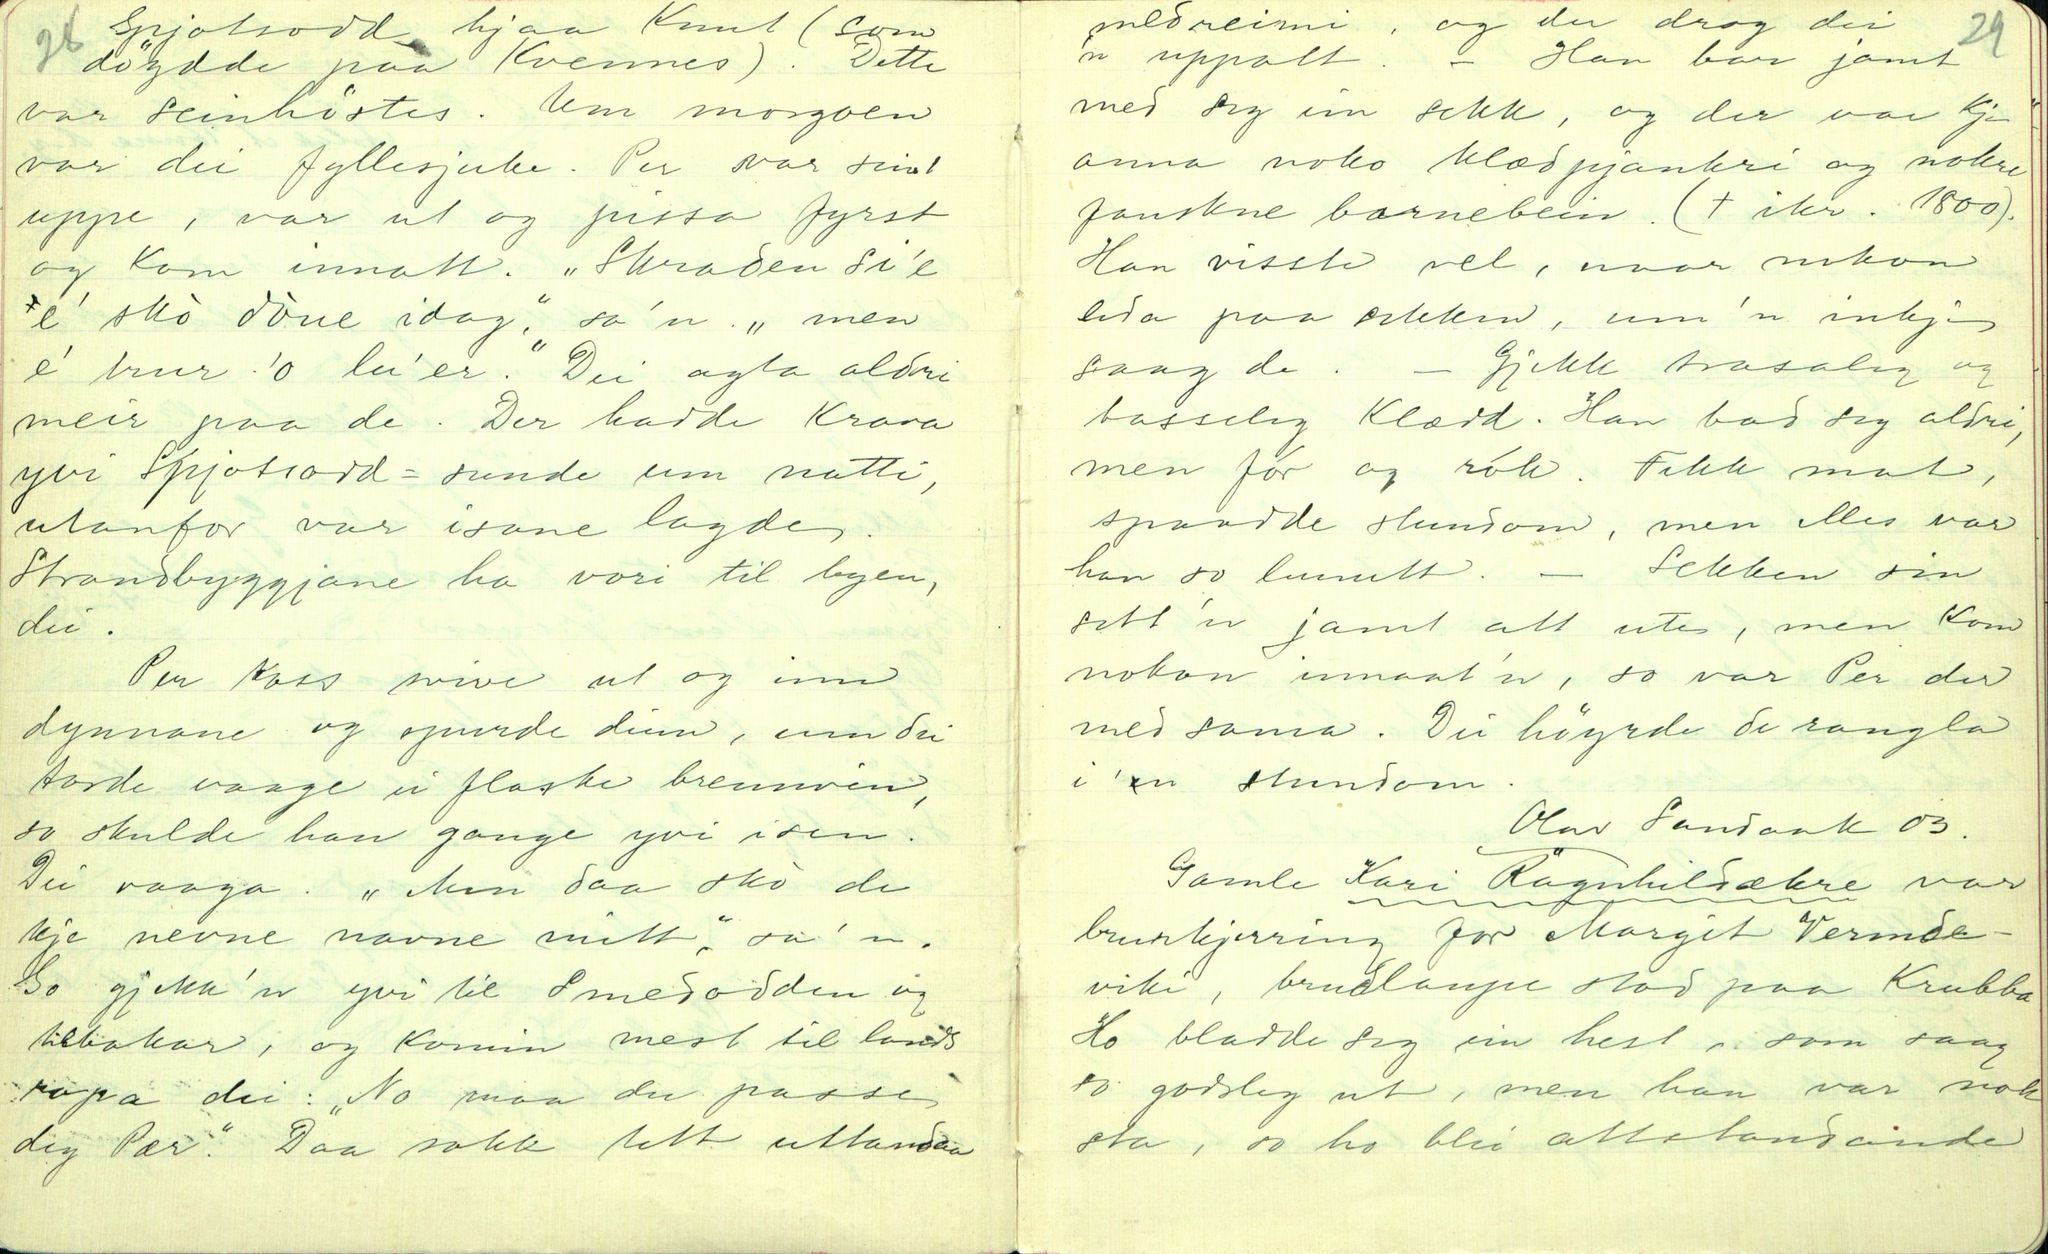 28
Spjotsodd hjaa Knut (som
döydde paa Kvennes). Dette
var seinhöstes. Um morgoen
var dei fyllesjuke. Per var sint
uppe, var ut og pissa fyrst
og kom innatt. "Skraden si'e
e' skò döne idag," sa'n. "men
e' trur 'o lu'er." Dei agta aldri
meir paa de. Der hadde Krava
yvi Spjotsodd-sunde um natti,
utanfor var isane lagde.
Strandbyggjane ha vori til byen,
dei.
Per Kass svive ut og inn
dynnane og spurde deim, um dei
torde vaage ei flaske brennvin,
so skulde han gange yvi isen.
Dei vaaga. "Men daa skò de
kje nevne navne mitt," sa'n.
So gjekk'n yvi til Smedodden og
tilbakar, og komin mest til lands
ropa dei: "No maa du passe
dig Pær." Daa sokk tett uttandaa
29
medreimi, og der drog dei
'n uppatt. - Han bar jamt
med seg ein sekk, og der var kje
anna noko klædpjankri og nokre
fauskne barnebein. († ikr. 1800).
Han visste vel, naar nokon
leda paa sekken, um'n inkje
saag de. - Gjekk trasaleg og
tasseleg klædd. Han bad seg aldri,
men fór og rók. Fekk mat,
spaadde stundom, men elles var
han so lunutt. - Sekken sin
sett'n jamt att ute, men kom
nokon innaat'n, so var Per der
med sama. Dei höyrde de rangla
i'n stundom.
Olav Sundaak 03.
Gamle Kari Ragnhildsækre var
brurkjerring for Margit Vermde-
viki, brudlaupe stod paa Krubba
Ho bladde seg ein hest, som saag
so godsleg ut, men han var nok
sta, so ho blei attstandande